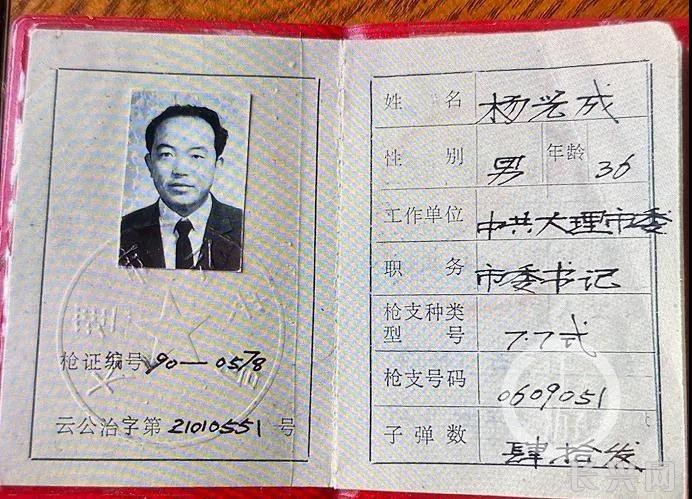 枪证编号90—0578
云公治字第21010551号
姓名 杨光成
性别 男 年龄 36
工作单位 中共大理市委
职务 市委书记
枪支种类型号 7.7式
枪支号码 0609051
子弹数 肆拾发
长兴网